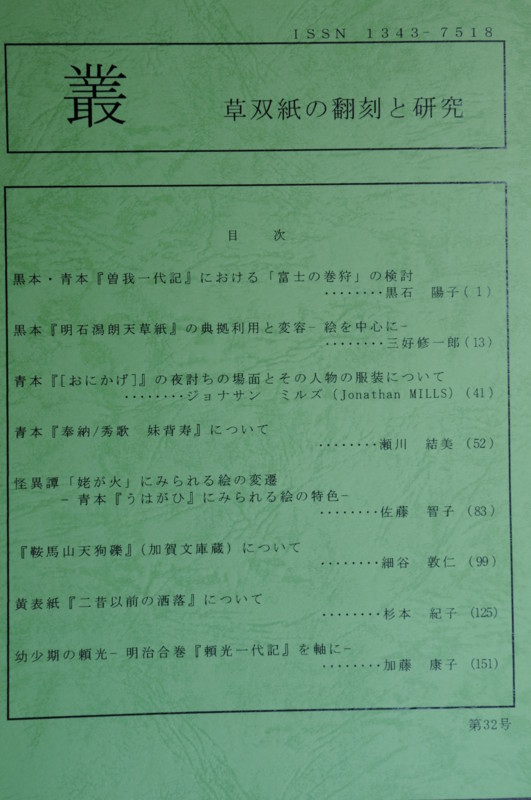 ISSN 1343-7518
叢 草双紙の翻刻と研究
目 次
黒本・青本『曽我一代記』における「富士の巻狩」の検討
········黒石 陽子(1)
黒本『明石潟朗天草紙』の典拠利用と変容-絵を中心に-
········三好修一郎(13)
青本『[おにかげ]』の夜討ちの場面とその人物の服装について
········ジョナサン ミルズ(Jonathan MILLS) (41)
青本『奉納/秀歌 妹背寿』について
········瀬川 結美 (52)
怪異譚「姥が火」にみられる絵の変遷
-青本『うはがひ』にみられる絵の特色-
········佐藤 智子 (83)
『鞍馬山天狗礫』(加賀文庫蔵)について
········細谷 敦仁 (99)
黄表紙『二昔以前の洒落』について
········杉本 紀子 (125)
幼少期の頼光-明治合巻『頼光一代記』を軸に-
········加藤 康子 (151)
第32号